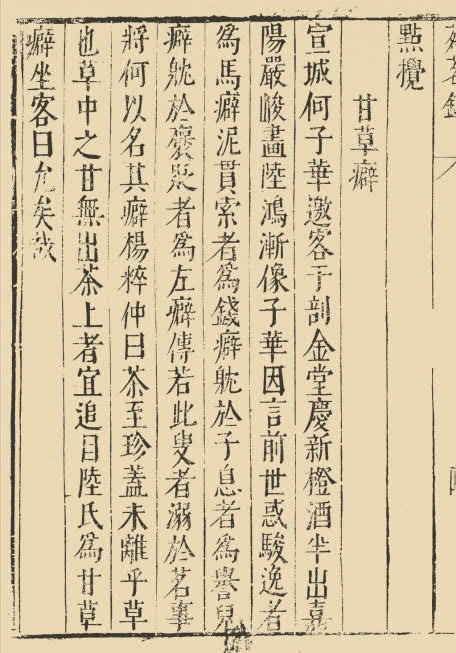 點攪
甘草癖
宣城何子華邀客于剖金堂慶新橙酒半出嘉
陽嚴峻畫陸鴻漸像子華因言前世惑駿逸者
為馬癖泥貫索者為錢癖躭於子息者為譽兒
癖躭於褒貶者為左癖傳若此叟者溺於茗事
將何以名其癖楊粹仲曰茶至珍蓋未離乎草
也草中之甘無出茶上者宜追目陸氏為甘草
癖坐客曰允矣哉